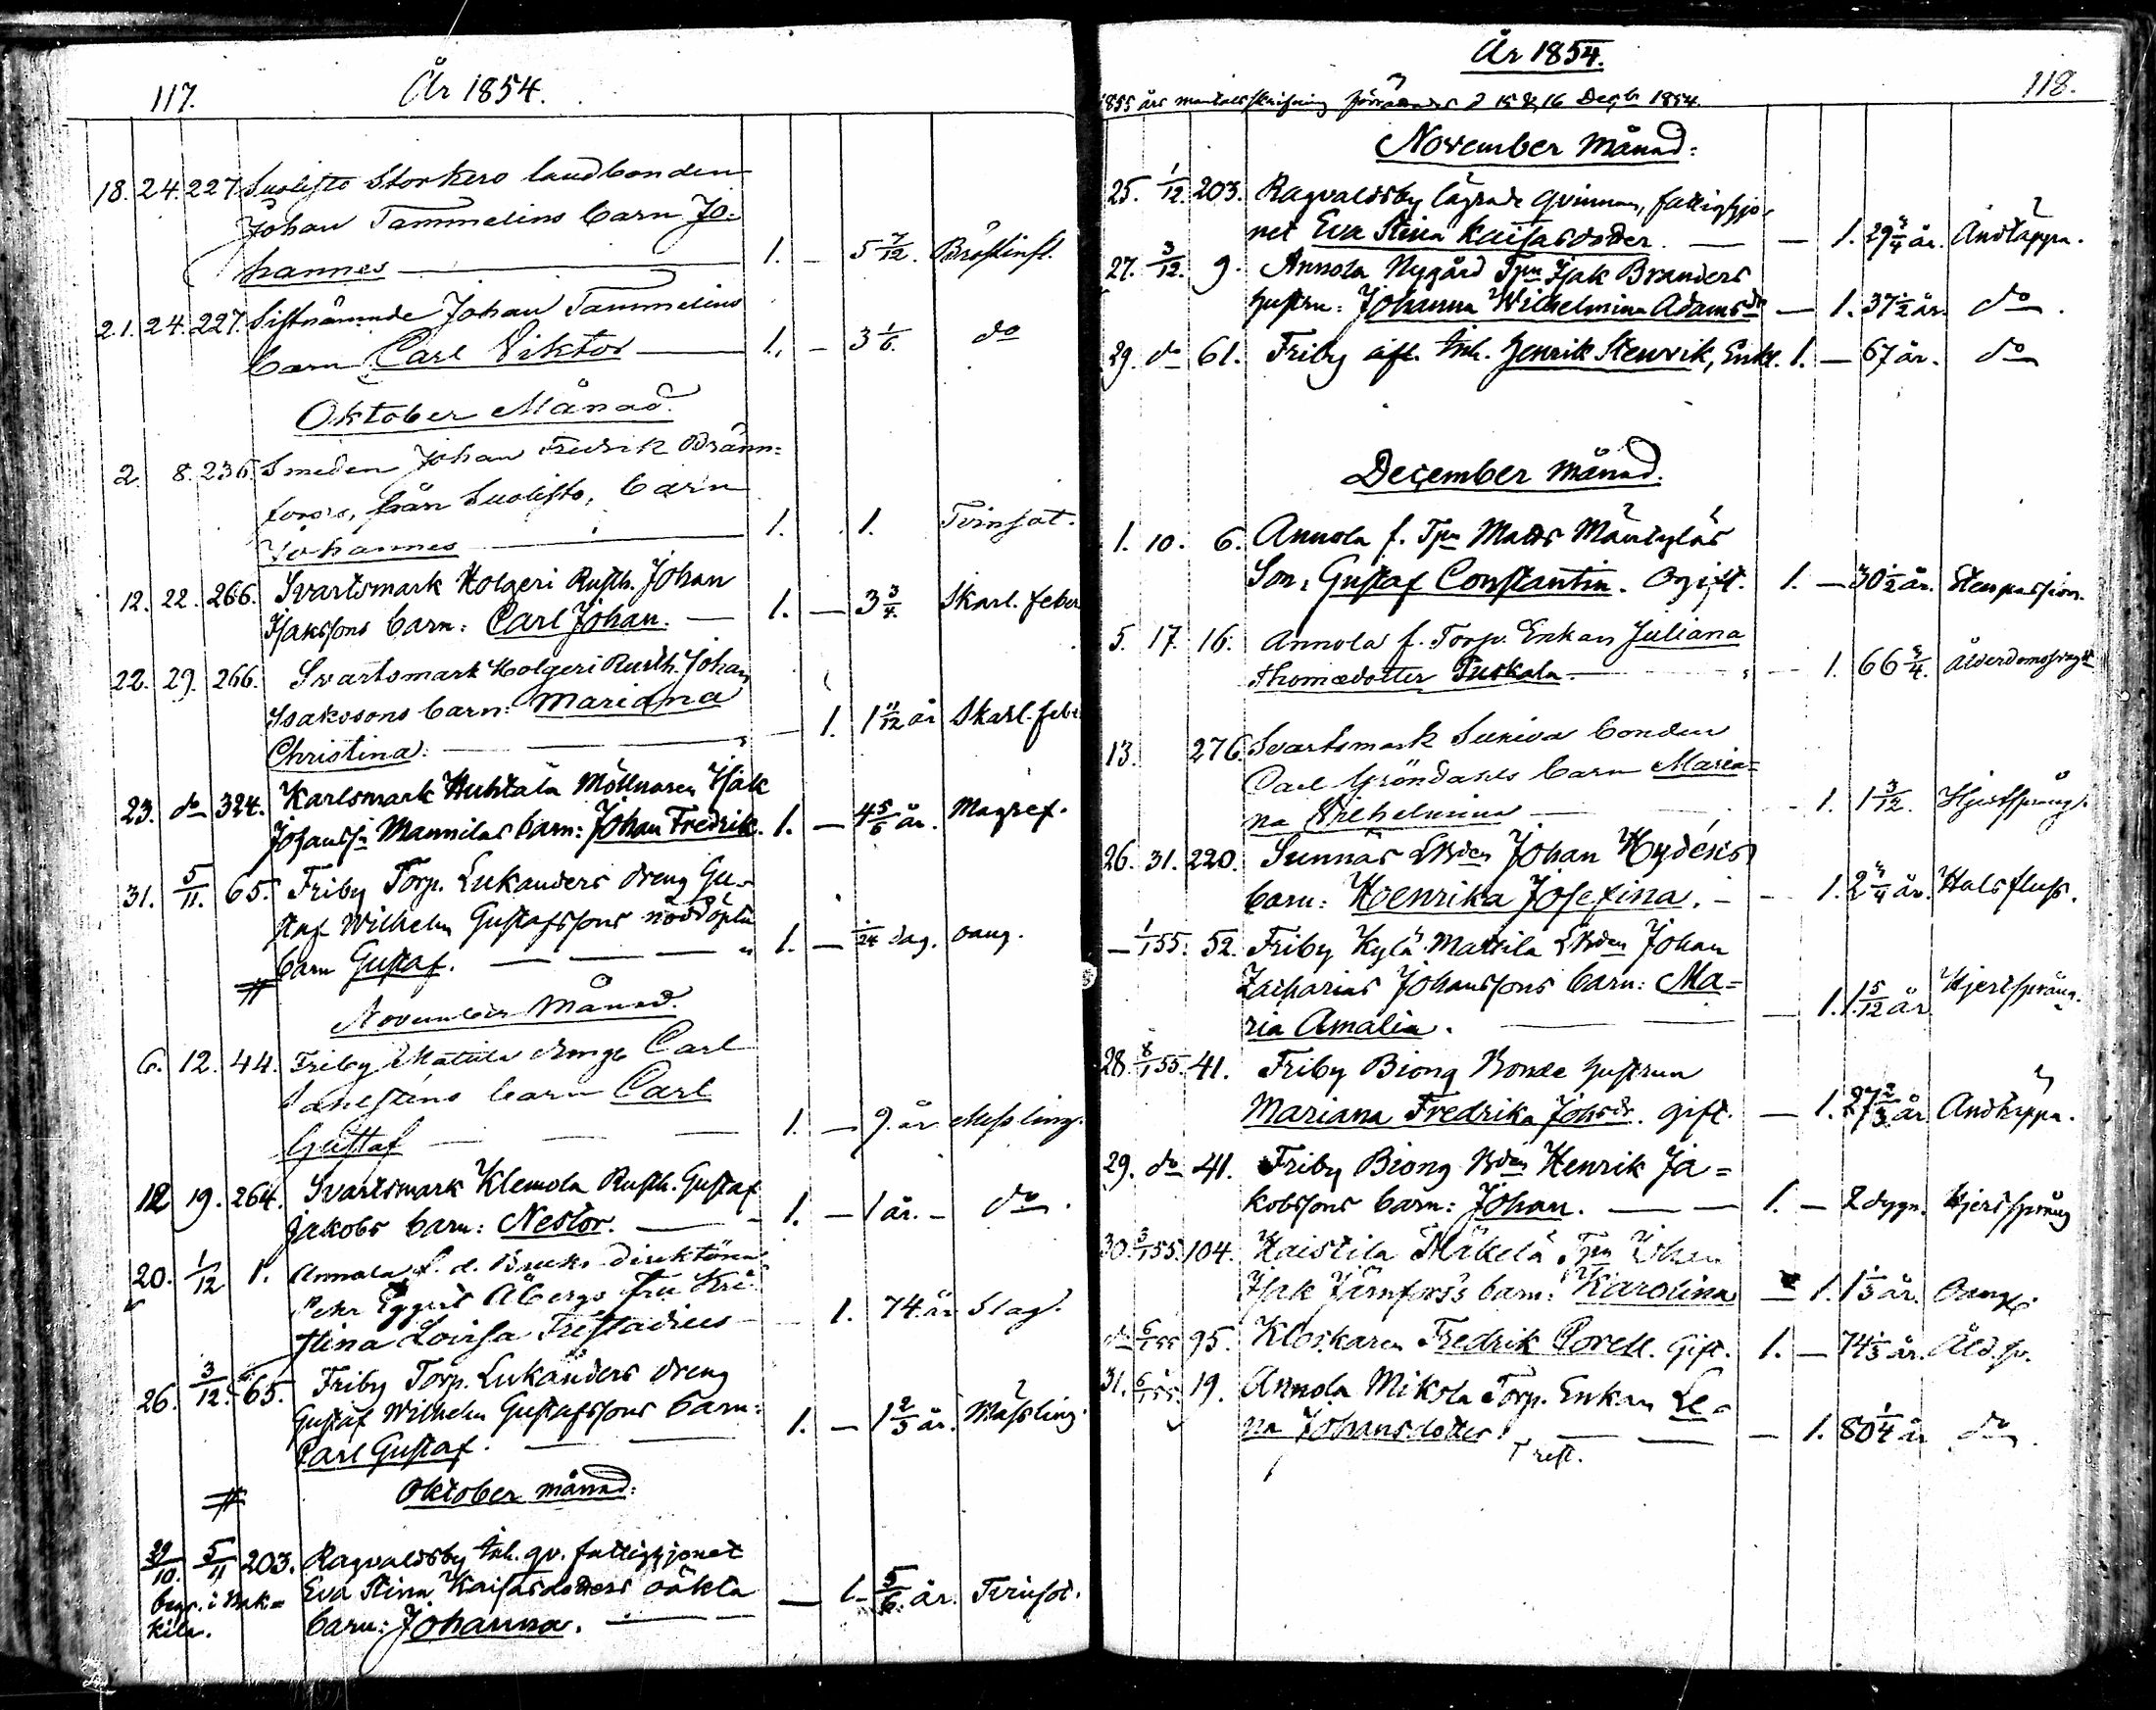 117. År 1854.
18. 24. 227. Suolisto Storkero landbonden
Johan Tammelins barn Jo-
hannes 1. — 5 7/12. Bröstinfl.
21. 24. 227. Sistnämnde Johan Tammelins
barn Carl Viktor 1. — 3 1/6. do
Oktober Månad.
2. 8. 236. Smeden Johan Fredrik Bränn-
fors's, från Suolisto, barn
Johannes 1. 1. Tvinsot.
12. 22. 266. Svartsmark Holgeri Rusth. Johan
Isakssons barn: Carl Johan. — 1. — 3 3/4. Skarl. feber
22. 29. 266. Svartsmark Holgeri Rusth. Johan
Isakssons barn: Mariana
Christina. — 1. 1 11/12 år Skarl. feber
23. do 324. Karlsmark Huhtala Möllnaren Isak
Johanss:s Mannilas barn: Johan Fredrik. 1. — 4 5/6 år. Magref.
31. 5/11. 65. Friby Torp. Lukanders dreng Gu-
staf Wilhelm Gustafssons nöddöpta
barn Gustaf. — 1. — 1/24 dag. oang.
November Månad.
6. 12. 44. Friby Mattila Carl
barn Carl
Gustaf 1. — 9. år Messling.
12 19. 264. Svartsmark Klemola Rusth. Gustaf
Jakobs barn: Nestor. — 1. — 1 år. — do.
20. 1/12 1. Annola f. d. Bruks Direktören
Pehr Eggert Åbergs Fru Kri-
stina Lovisa Frestadius — 1. 74 år Slag.
26. 3/12. 65. Friby Torp. Lukanders dreng
Gustaf Wilhelm Gustafssons barn:
Carl Gustaf. — 1. — 1 2/3 år. Mässling.
Oktober månad:
29/10. 5/11 203. Ragvaldsby Inh. qv. fattighjonet
begr. i Nak- Eva Stina Kaisasdotters oäkta
kila. barn: Johanna. — 1. 5/6 år. Tvinsot.
År 1854. 118.
1855 års mantalsskrifning förrättades d 15 & 16 Decb. 1854.
November Månad:
25. 1/12. 203. Ragvaldsby lägrade qvinnan, fattighjo-
net Eva Stina Kaisasdotter. — 1. 29 3/4 år. Andtäppa.
27. 3/12. 9. Annola Nygård Tpn Isak Branders
hustru: Johanna Wilhelmina Adamsdr — 1. 37 1/2 år. do.
29. do 61. Friby Inh. Henrik Stenvik, Enkl. 1. — 67 år. do
December Månad.
1. 10. 6. Annola f. Tpn Matts Mäntyläs
Son, Gustaf Constantin. Ogift. 1. — 30 1/2 år. Stenpassion.
5. 17. 16. Annola f. Torp. Enkan Juliana
Thomædotter Tuskala. — 1. 66 3/4. Ålderdomssvagh.
13. 276. Svartsmark Sukiva bonden
Carl Gröndahls barn Maria-
na Vilhelmina — 1. 1 3/12. Hjertspång.
26. 31. 220. Sunnäs LBden Johan Hydéns
barn: Henrika Josefina. — 1. 2 3/4 år. Halsfluss.
— 1/1 55. 52. Friby Kylä Mattila LBden Johan
Zacharias Johanssons barn: Ma-
ria Amalia. — 1. 1 5/12 år Hjertspång.
28. 8/1 55. 41. Friby Biong Bonde hustrun
Mariana Fredrika Johsdr. gift. — 1. 27 2/3 år Andtäppa.
29. do 41. Friby Biong Bden Henrik Ja-
kobssons barn: Johan. — 1. — 2 dygn. Hjertspång
30. 55. 104. Kaistila Mäkelä Tpn Johan
Isak Järnfors's barn: Karolina — 1. 1 1/3 år. Oang.
do 6/1 55 95. Klockaren Fredrik Corell. Gift. 1. — 74 1/3 år. Åld. sv.
31. 6/1 55. 19. Annola Mikola Torp. Enkan Le-
na Johansdotter — 1. 80 1/4 år do.